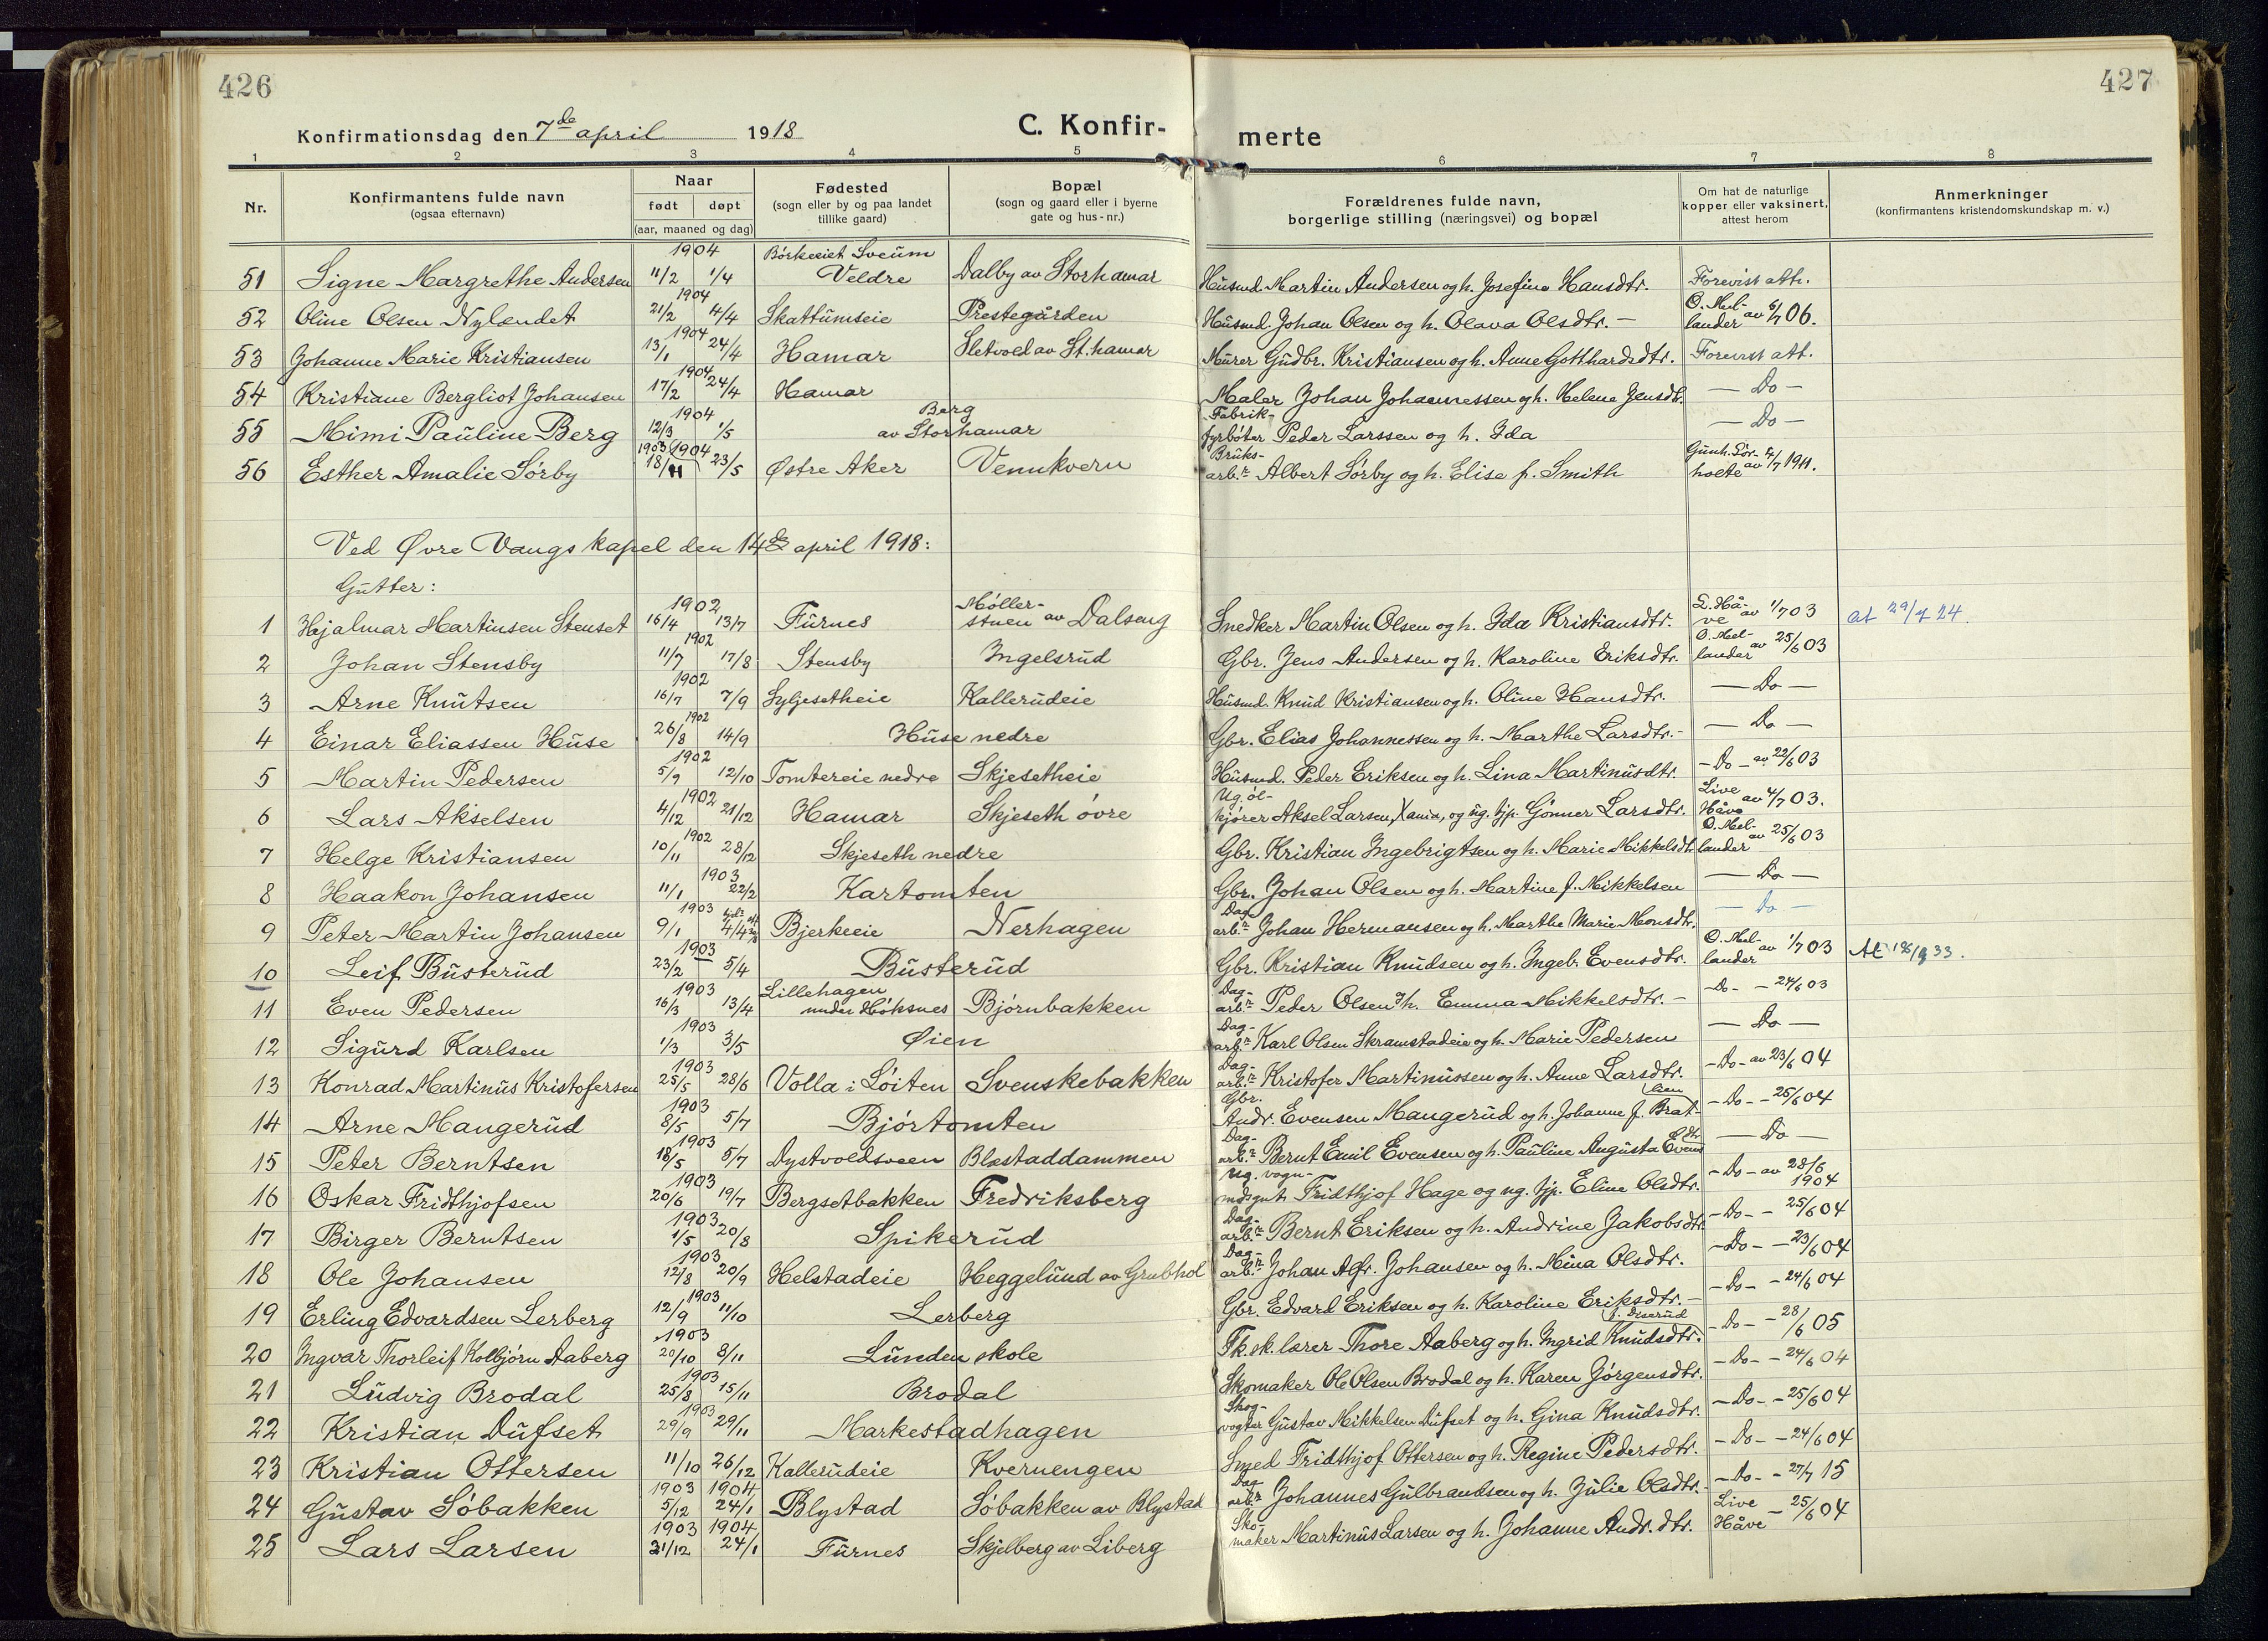 426
427
Konfirmationsdag den 7de april 1918
C. Konfirmerte
1 2 3 4 5 6 7 8
Nr.
Konfirmantens fulde navn (ogsaa efternavn)
Naar født døpt (aar, maaned og dag)
Fødested (sogn eller by og paa landet tillike gaard)
Bopæl (sogn og gaard eller i byerne gate og hus-nr.)
Forældrenes fulde navn, borgerlige stilling (næringsvei) og bopæl
Om hat de naturlige kopper eller vaksinert, attest herom
Anmerkninger (konfirmantens kristendomskundskap m. v.)
51 Signe Margrethe Andersen 1904 11/2 1/4 Børkeeiet Sveum Veldre Dalby av Storhamar Husmd. Martin Andersen og h. Josefine Hansdtr. Forevist att.
52 Oline Olsen Nylændet 1904 21/2 4/4 Skattumseie Prestegården Husmd. Johan Olsen og h. Olava Olsdtr. — O. Mellander av 6/7 06.
53 Johanne Marie Kristiansen 1904 13/1 24/4 Hamar Sletvold av St.hamar Murer Gudbr. Kristiansen og h. Anne Gotthardsdtr. Forevist att.
54 Kristiane Bergliot Johansen 1904 17/2 24/4 Hamar Maler Johan Johannessen og h. Helene Jensdtr. — Do —
55 Mimi Pauline Berg 1904 12/3 1/5 Berg av Storhamar Fabrikfyrbøter Peder Larssen og h. Ida — Do —
56 Esther Amalie Sørby 1903 1904 18/11 23/5 Østre Aker Vennkvern Bruksarb.r Albert Sørby og h. Elise f. Smith Gunh. Sørholte av 4/7 1911.
Ved Øvre Vangs kapel den 14de april 1918:
Gutter:
1 Hjalmar Martinsen Stenset 1902 16/4 13/7 Furnes Møllerstuen av Dalseng Snedker Martin Olsen og h. Ida Kristiansdtr. L. Håve av 1/7 03 at 29/4 24.
2 Johan Stensby 1902 11/7 17/8 Stensby Ingelsrud Gbr. Jens Andersen og h. Karoline Eriksdtr. O. Mellander av 25/6 03
3 Arne Knutsen 1902 16/7 7/9 Syljesetheie Kallerudeie Husmd. Knud Kristiansen og h. Oline Hansdtr. — Do —
4 Einar Eliassen Huse 1902 26/8 14/9 Huse nedre Gbr. Elias Johannessen og h. Marthe Larsdtr. — Do —
5 Martin Pedersen 1902 5/9 12/10 Tomtereie nedre Skjesetheie Husmd. Peder Eriksen og h. Lina Martinusdtr. — Do — av 22/6 03
6 Lars Akselsen 1902 4/12 21/12 Hamar Skjeseth øvre Ug. ølkjører Aksel Larsen, Xania, og ug. tjp. Gønner Larsdtr. Live Håve av 4/7 03.
7 Helge Kristiansen 1902 10/11 28/12 Skjeseth nedre Gbr. Kristian Ingebrigtsen og h. Marie Mikkelsdtr. O. Mellander av 25/6 03
8 Haakon Johansen 1903 11/1 22/2 Kartomten Gbr. Johan Olsen og h. Martine f. Mikkelsen — Do —
9 Peter Martin Johansen 1903 9/1 4/4 Bjerkeeie Nerhagen Dagarb.r Johan Hermansen og h. Marthe Marie Monsdtr. — Do —
10 Leif Busterud 1903 23/2 5/4 Busterud Gbr. Kristian Knudsen og h. Ingeb. Evensdtr. O. Mellander av 1/7 03 At 18/9 33.
11 Even Pedersen 1903 16/3 13/4 Lillehagen under Høksnes Bjørnbakken Dagarb.r Peder Olsen og h. Emma Mikkelsdtr. — Do — 24/6 03
12 Sigurd Karlsen 1903 1/3 3/5 Øien Dagarb.r Karl Olsen Skramstadeie og h. Marie Pedersen — Do —
13 Konrad Martinus Kristofersen 1903 25/5 28/6 Volla i Løiten Svenskebakken Dagarb.r Kristofer Martinussen og h. Anne Larsdtr. — Do — av 23/6 04
14 Arne Mangerud 1903 8/5 5/7 Bjørtomten Gbr. Andr. Evensen Mangerud og h. Johanne f. Bratlien — Do — 25/6 04
15 Peter Berntsen 1903 18/5 5/7 Dystvoldsveen Blæstaddammen Dagarb.r Bernt Emil Evensen og h. Pauline Augusta Evensdtr — Do —
16 Oskar Fridthjofsen 1903 20/6 19/7 Bergsetbakken Fredriksberg Ug. vognmdsgut Fridthjof Hage og ug. tjp. Eline Olsdtr. — Do — av 28/6 1904
17 Birger Berntsen 1903 1/5 20/8 Spikerud Dagarb.r Bernt Eriksen og h. Andrine Jakobsdtr — Do — 25/6 04
18 Ole Johansen 1903 12/8 20/9 Helstadeie Heggelund av Grubhol Dagarb.r Johan Alfr. Johansen og h. Mina Olsdtr. — Do — 23/6 04
19 Erling Edvardsen Lerberg 1903 12/9 11/10 Lerberg Gbr. Edvard Eriksen og h. Karoline Eriksdtr. — Do — 24/6 04
20 Ingvar Thorleif Kolbjørn Aaberg 1903 20/10 8/11 Lunden skole Fk.sk.lærer Thore Aaberg og h. Ingrid Knudsdtr. f. Diserud — Do — 28/6 05
21 Ludvig Brodal 1903 25/8 15/11 Brodal Skomaker Ole Olsen Brodal og h. Karen Jørgensdtr. — Do — 24/6 04
22 Kristian Dufset 1903 29/9 29/11 Markestadhagen Skogvogter Gustav Mikkelsen Dufset og h. Gina Knudsdtr. — Do — 25/6 04
23 Kristian Ottersen 11/10 26/12 Kallerudeie Kvernengen Smed Fridthjof Ottersen og h. Regine Pedersdtr. — Do — 24/6 04
24 Gustav Søbakken 1903 1904 5/12 24/1 Blystad Søbakken av Blystad Dagarb.r Johannes Gulbrandsen og h. Julie Olsdtr. — Do — 27/7 15
25 Lars Larsen 1903 1904 31/12 24/1 Furnes Skjelberg av Liberg Skomaker Martinus Larsen og h. Johanne Andr.dtr. Live Håve — 25/6 04